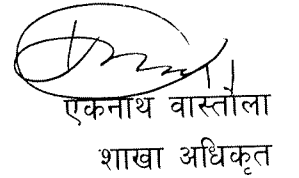 एकनाथ वास्तौला
शाखा अधिकृत